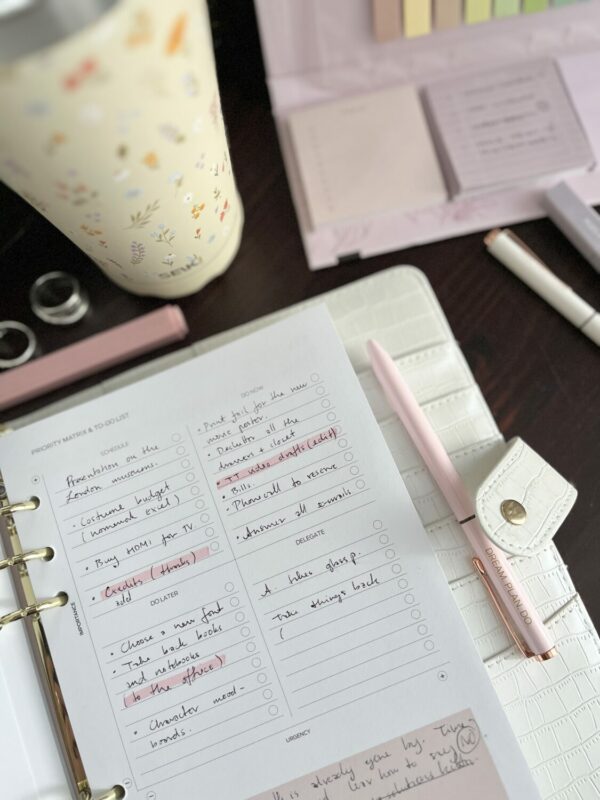 SEW
PRIORITY MATRIX & TO-DO LIST
SCHEDULE
Presentation on the
London museums.
• Costume budget
(nomenad excel)
• Buy HDMI for TV
• Credits (thanks)
add
DO NOW
• Print foil for the new
movie poster.
• Declutter all the
drawers + closet
• TT video drafts (edit)
• Bills.
• Phone call to reserve
• Answer all e-mails
DO LATER
• Choose a new font
• Take back books
and notebooks
(to the office)
• Character mood-
boards.
DELEGATE
A. takes glass p.
Take things back
(
IMPORTANCE
URGENCY
DREAM. PLAN. DO
is already gone by. Time
how to say No